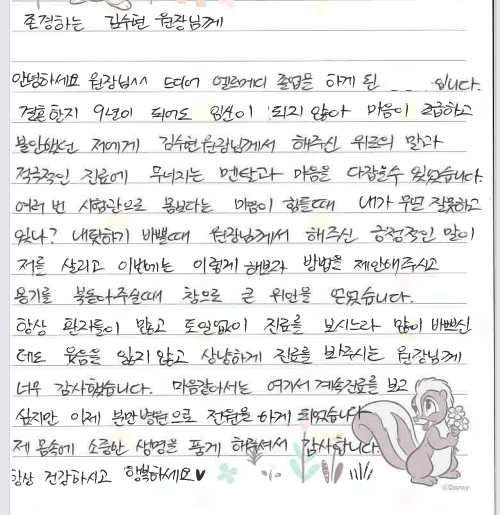 존경하는 김수현 원장님께
안녕하세요 원장님^^ 드디어 엘르메디 졸업을 하게 된 _ _ 입니다.
결혼한지 9년이 되어도 임신이 되지 않아 마음이 조급하고
불안했던 저에게 김수현원장님께서 해주신 위로의 말과
적극적인 진료에 무너지는 멘탈과 마음을 다잡을수 있었습니다.
여러 번 시험관으로 몸보다는 마음이 힘들때 내가 무얼 잘못하고
있나? 내탓하기 바쁠때 원장님께서 해주신 긍정적인 말이
저를 살리고 이번에는 이렇게 해보자 방법을 제안해주시고
용기를 북돋아주실때 참으로 큰 위안을 얻었습니다.
항상 환자들이 많고 토일없이 진료를 보시느라 많이 바쁘신
데도 웃음을 잃지 않고 상냥하게 진료를 봐주시는 원장님께
너무 감사했습니다. 마음같아서는 여기서 계속진료를 보고
싶지만 이제 분만병원으로 전원을 하게 되었습니다
제 몸속에 소중한 생명을 품게 해주셔서 감사합니다.
항상 건강하시고 행복하세요♥
©Disney